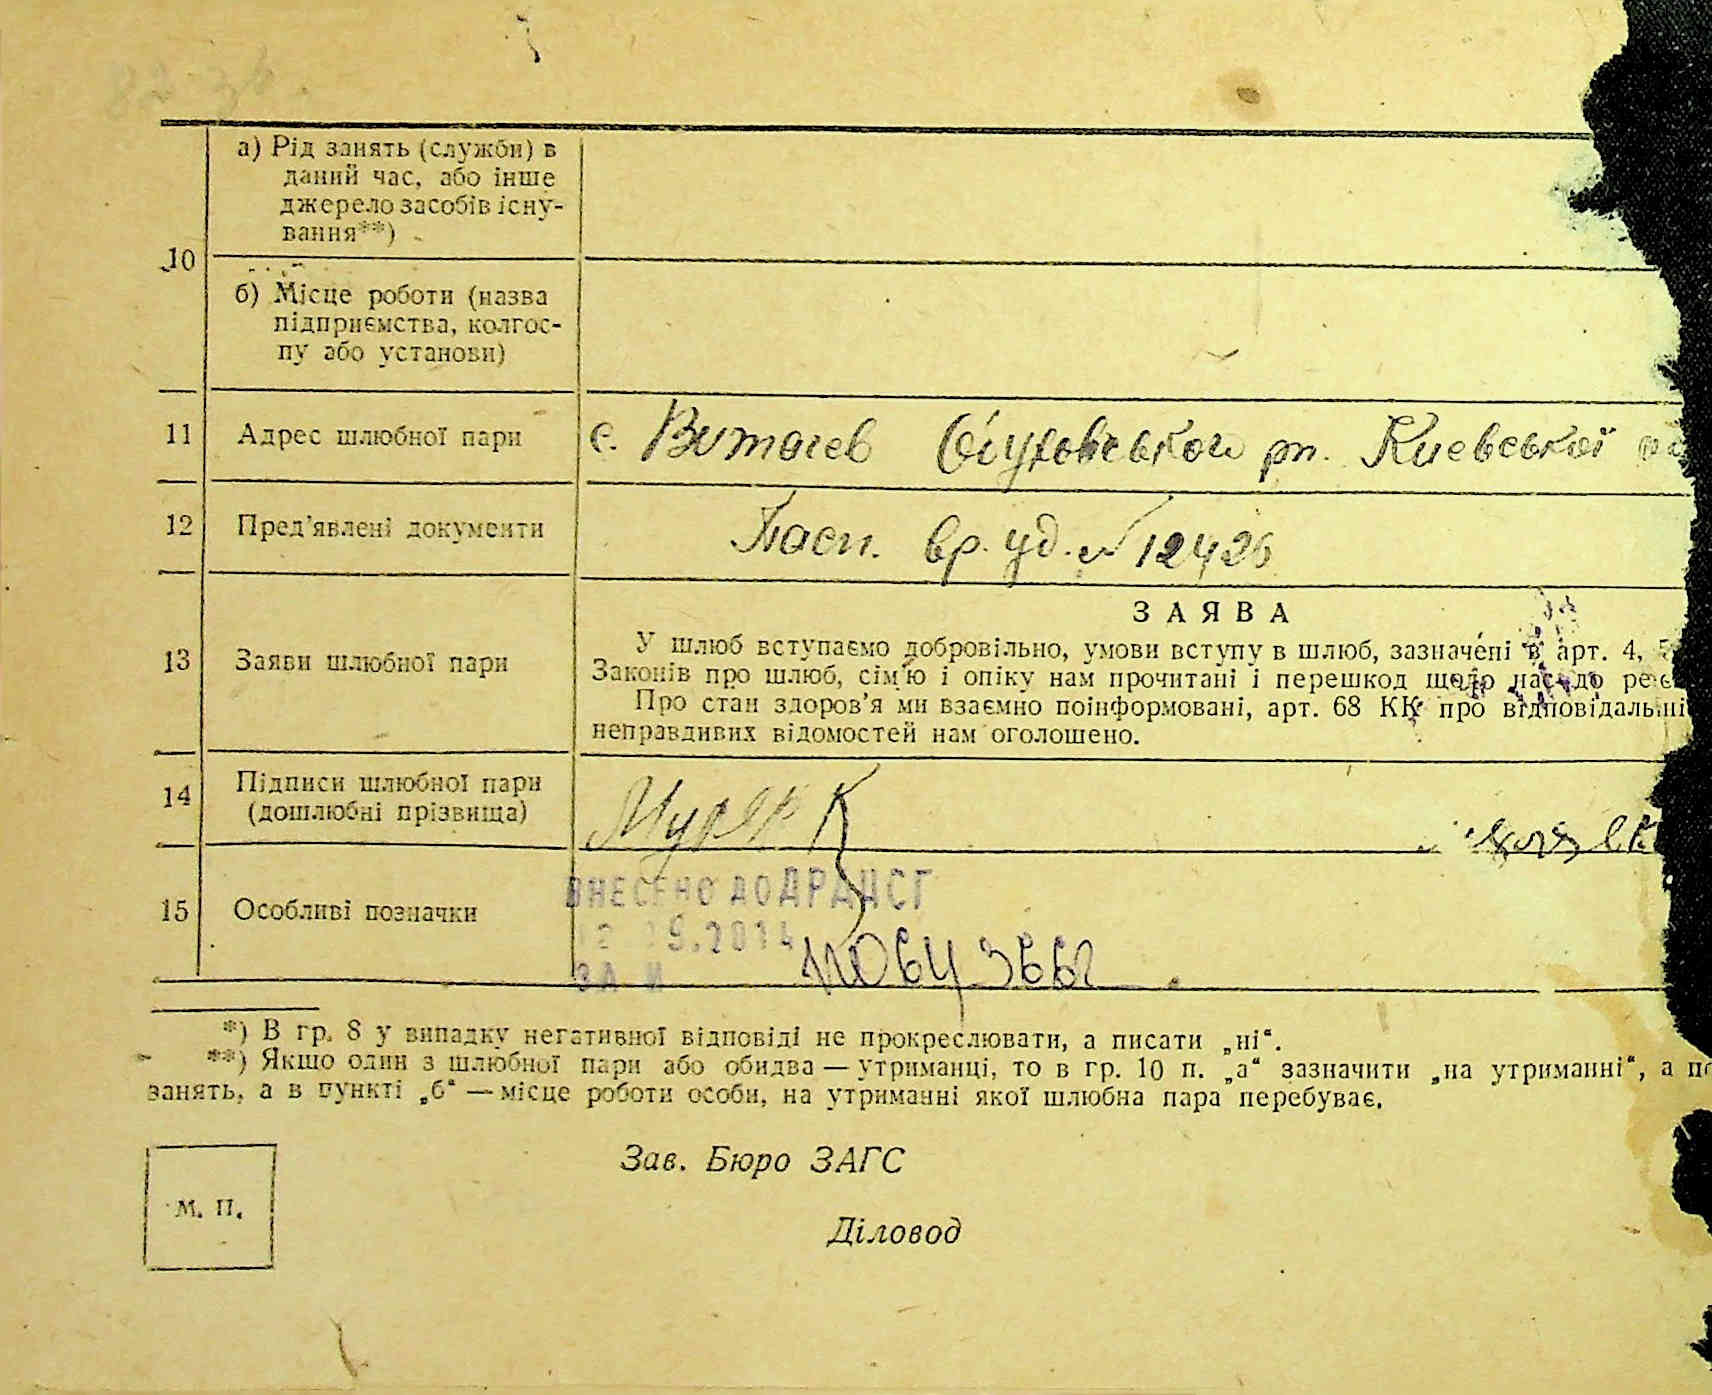 10
а) Рід занять (служби) в
даний час, або інше
джерело засобів існу-
вання**)
б) Місце роботи (назва
підприємства, колгос-
пу або установи)
11 Адрес шлюбної пари с. Витачев Обуховського рн. Киевської
12 Пред'явлені документи Пасп. вр. уд. № 12426
ЗАЯВА
13 Заяви шлюбної пари
У шлюб вступаємо добровільно, умови вступу в шлюб, зазначені в арт. 4, 5
Законів про шлюб, сім'ю і опіку нам прочитані і перешкод щодо нас до реє
Про стан здоров'я ми взаємно поінформовані, арт. 68 КК про відповідальні
неправдивих відомостей нам оголошено.
14 Підписи шлюбної пари
(дошлюбні прізвища)
15 Особливі позначки
ВНЕСЕНО ДО ДРАЦСГ
9.2014
ЗА №
*) В гр. 8 у випадку негативної відповіді не прокреслювати, а писати „ні“.
**) Якщо один з шлюбної пари або обидва — утриманці, то в гр. 10 п. „а“ зазначити „на утриманні“, а по
занять, а в пункті „б“ — місце роботи особи, на утриманні якої шлюбна пара перебуває.
Зав. Бюро ЗАГС
М. П.
Діловод